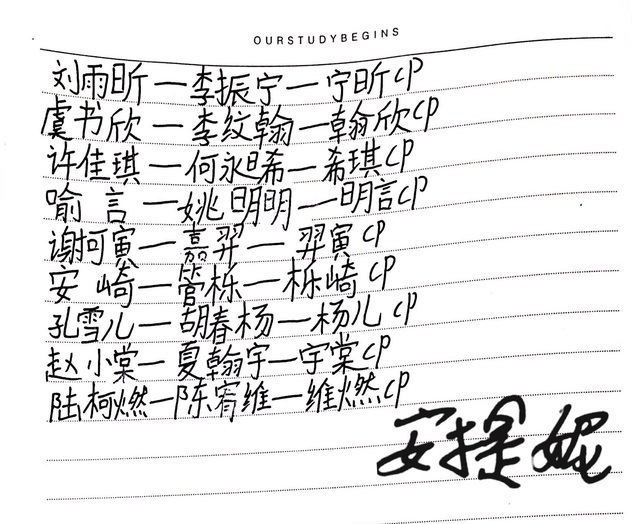 OURSTUDYBEGINS
刘雨昕一李振宁一宁昕CP
虞书欣一李纹翰一翰欣CP
许佳琪一何永晞一希琪CP
喻言一姚明明一明言CP
谢可寅一嘉羿一羿寅CP
安崎一管栎一栎崎CP
孔雪儿一胡春杨一杨儿CP
赵小棠一夏翰宇一宇棠CP
陆柯燃一陈宥维一维燃CP
安提妮